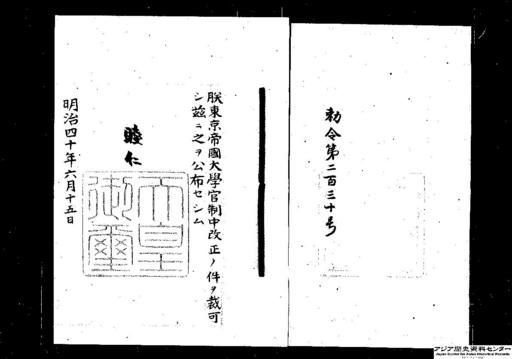 勅令第二百三十号
朕東京帝國大學官制中改正ノ件ヲ裁可
シ茲ニ之ヲ公布セシム
睦仁
天皇
御璽
明治四十年六月十五日
アジア歴史資料センター
Japan Center for Asian Historical Records